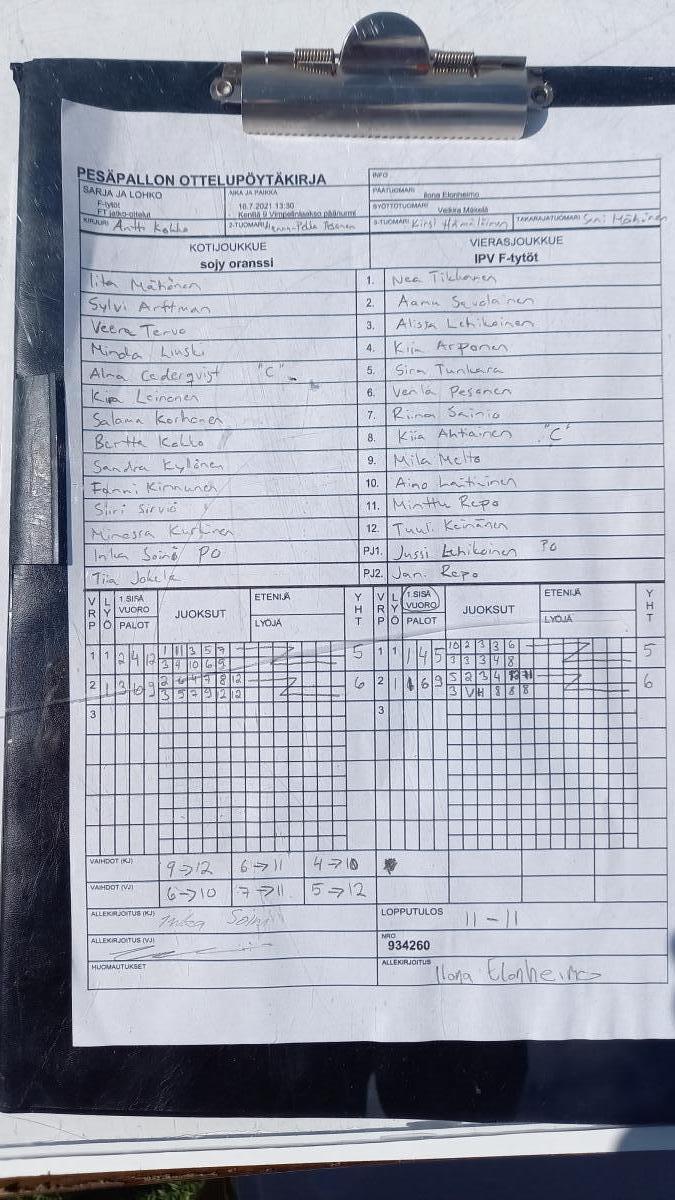 PESÄPALLON OTTELUPÖYTÄKIRJA
INFO
SARJA JA LOHKO
F-tytöt
FT jatko-ottelut
AIKA JA PAIKKA
16.7.2021 13:30
Kenttä 9 Vimpelinlaakso päänurmi
PÄÄTUOMARI Ilona Elonheimo
SYÖTTÖTUOMARI Veikka Mäkelä
KIRJURI Antto Kokko
2-TUOMARI Pesonen
3-TUOMARI Kirsi Hämäläinen
TAKARAJATUOMARI Mähönen
KOTIJOUKKUE
sojy oranssi
VIERASJOUKKUE
IPV F-tytöt
Iita Mähönen 1. Nea Tikkanen
Sylvi Arffman 2. Aamu Savolainen
Veera Tervo 3. Alissa Lehikoinen
Minda Linski 4. Kiia Arponen
Alma Cederqvist "C" 5. Sira Tunkara
Kira Leinonen 6. Venla Pesonen
Salama Korhonen 7. Riina Sainio
Bertta Kokko 8. Kiia Ahtiainen "C"
Sandra Kylönen 9. Mila Melto
Fanni Kinnunen 10. Aino Laitinen
Siiri Sirviö 11. Minttu Repo
Minessa Kurkinen 12. Tuuli Keinänen
Inka Soini PO PJ1. Jussi Lehikoinen PO
Tiia Jokela PJ2. Jani Repo
VRP LYÖ 1.SISÄVUORO PALOT JUOKSUT ETENIJÄ LYÖJÄ YHT VRP LYÖ 1.SISÄVUORO PALOT JUOKSUT ETENIJÄ LYÖJÄ YHT
1 1 2 4 12 1 11 3 5 7 5 1 1 1 4 5 10 2 3 3 6 5
3 4 10 6 9 3 3 3 4 8
2 1 3 10 9 2 6 4 7 8 12 6 2 1 1 6 9 5 2 3 4 11 6
3 5 7 9 12 12 3 VH 8 8 8
3 3
VAIHDOT (KJ) 9→12 6→11 4→10
VAIHDOT (VJ) 6→10 7→11 5→12
ALLEKIRJOITUS (KJ) Inka Soini
LOPPUTULOS 11-11
ALLEKIRJOITUS (VJ)
NRO
934260
HUOMAUTUKSET
ALLEKIRJOITUS Ilona Elonheimo